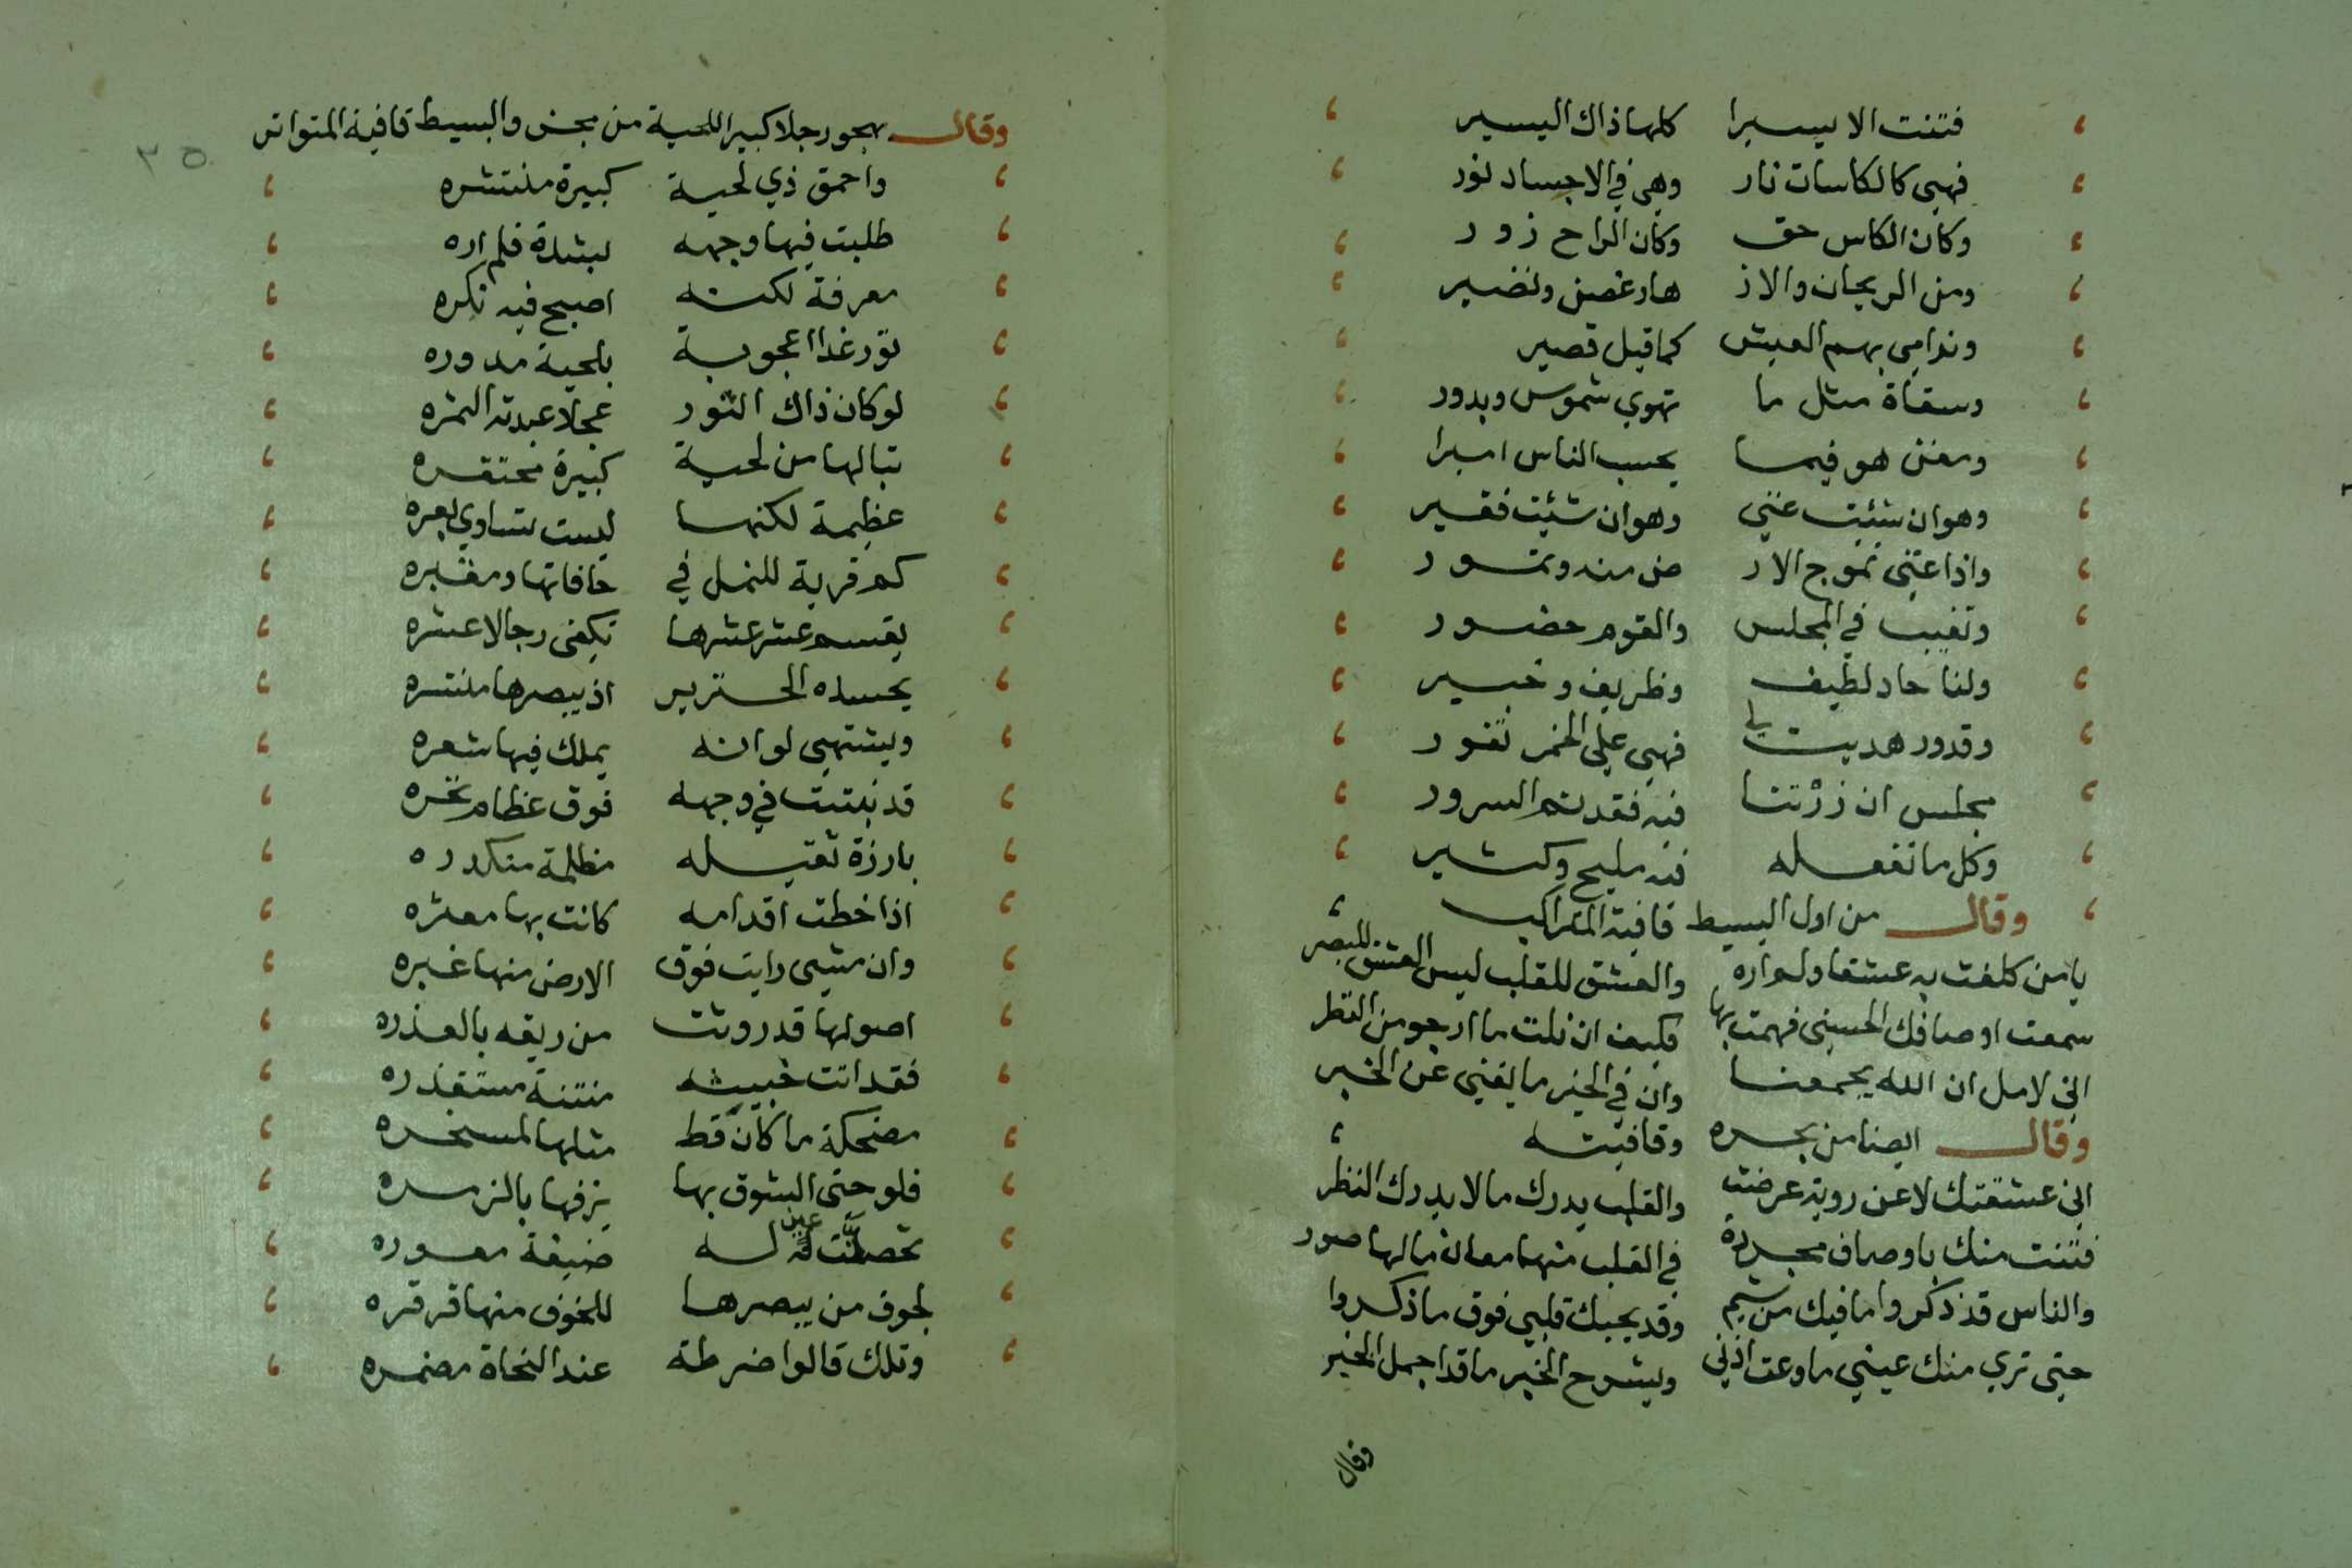 فتنت الا يسيرا كلها ذاك اليسير
فهي كالكاسات نار وهي في الاجساد نور
وكان الكاس حق وكان الراح زور
ومن الريحان والاز هار غصن ونضير
وندامي بهم العيش كما قيل قصير
وسقاة مثل ما تهوي شموس وبدور
ومغن هو فيما يحسب الناس اميرا
وهو ان شئت غني وهو ان شئت فقير
واذا غني تموج الار ض منه وتمور
وتغيب في المجلس والقوم حضور
ولنا حاد لطيف وظريف وخبير
وقدور هديت يا فهي علي الخمر تفور
مجلس ان زرتنا فيه فقد تم السرور
وكل ما نفعله فيه مليح وكثير
وقال من اول البسيط قافية المتراكب
يا من كلفت به عشقا ولم اره والعشق للقلب ليس العشق للبصر
سمعت اوصافك الحسني فهمت بها فكيف ان نلت ما ارجو من النظر
اني لامل ان الله يجمعنا وان في الخبر ما يغني عن الخبر
وقال ايضا من بحره وقافيته
اني عشقتك لا عن روية عرضت والقلب يدرك ما لا يدرك النظر
فتنت منك باوصاف مجردة في القلب منها معان ما لها صور
والناس قد ذكروا ما فيك من شيم وقد يحبك قلبي فوق ما ذكروا
حتى تري منك عيني ما وعت اذني ويشرح الخبر ما قد اجمل الخبر
وقال
٣٥
وقال يهجو رجلا كبير اللحية من مجزو البسيط قافية المتواتر
واحمق ذي لحية كبيرة منتشره
طلبت فيها وجهه بشدة فلم اره
معرفة لكنه اصبح فيه نكره
ثور غدا اعجوبة بلحية مدوره
لو كان ذاك الثور عجلا عبدته السمره
تبا لها من لحية كبيرة محتقره
عظيمة لكنها ليست تساوي بعره
كم قرية للنمل في حافاتها ومقبره
يقسم عشر عشرها تكفي رجالا عشره
يحسده الخنزير اذ يبصرها منتشره
ويشتهي لو انه يملك فيها شعره
قد نبتت في وجهه فوق عظام نخره
بارزة ثقيله مظلمة منكدره
اذا خطت اقدامه كانت بها معثره
وان مشي رايت فوق الارض منها غبره
اصولها قد رويت من ريقه بالعذره
فقد اتت خبيثه منتنة مستقذره
مضحكة ما كان قط مثلها لمسخره
فلو حتى السوق بها يزفها بالزمره
تحصلت له ضيقة معوره
لجوف من يبصرها للخوف منها قرقره
وتلك قالوا ضرطة عند النحاة مضمره